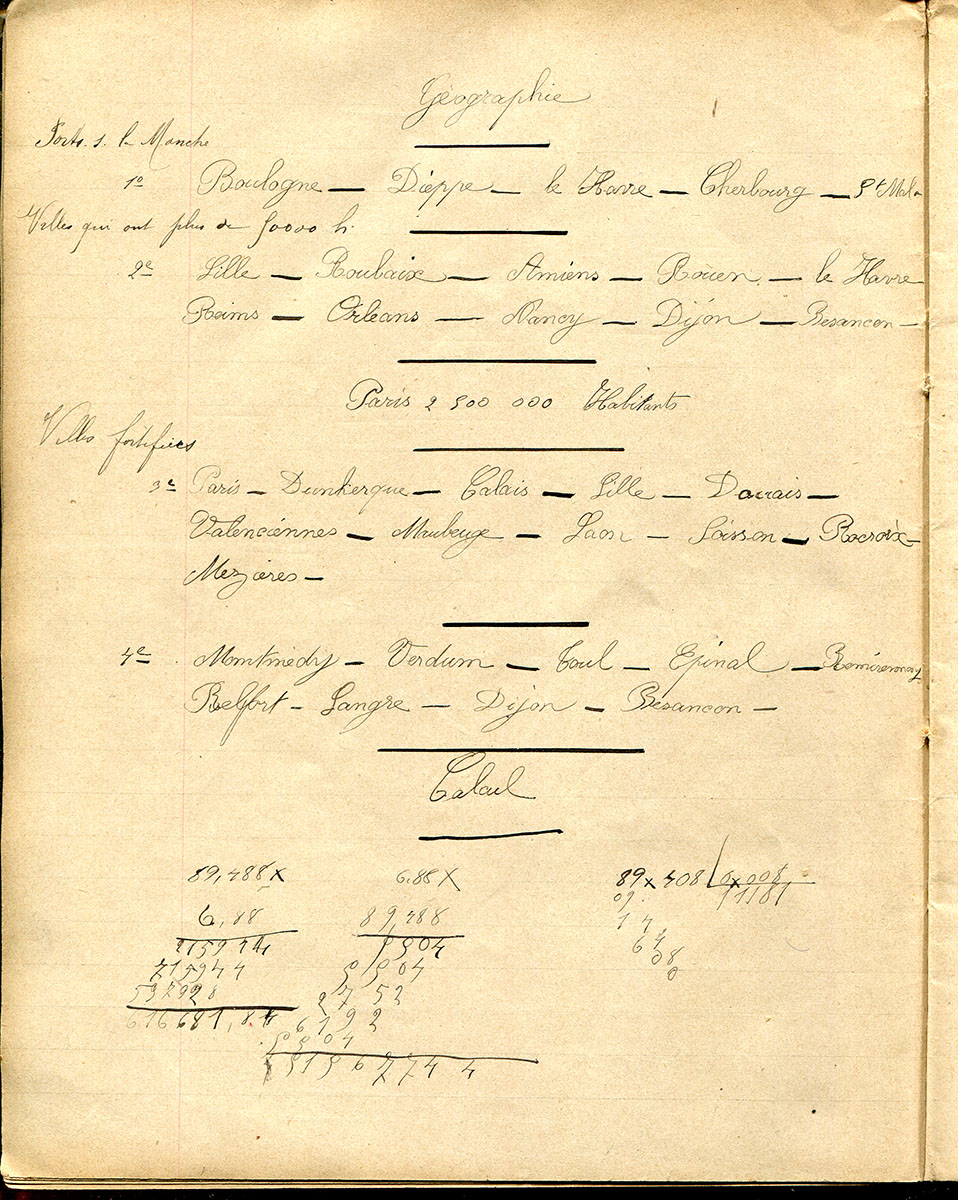 Géographie
Ports. s. la Manche
1º Boulogne — Dieppe — le Havre — Cherbourg — St Malo
Villes qui ont plus de 50000 h.
2e Lille — Roubaix — Amiens — Rouen — le Havre
Reims — Orléans — Nancy — Dijon — Besancon —
Paris 2 500 000 Habitants
Villes fortifiées
3e Paris — Dunkerque — Calais — Lille — Douais —
Valenciennes — Maubeuge — Laon — Soisson — Rocroix —
Mezières —
4e Montmédy — Verdum — Toul — Epinal —
Belfort — Langre — Dijon — Besancon —
Calcul
89,488 x 6.88 x 89 x 408 0 x 008
6,88 89,488 09 11181
715944 5504 14
715944 5504 64
2752 08
6192 0
5504